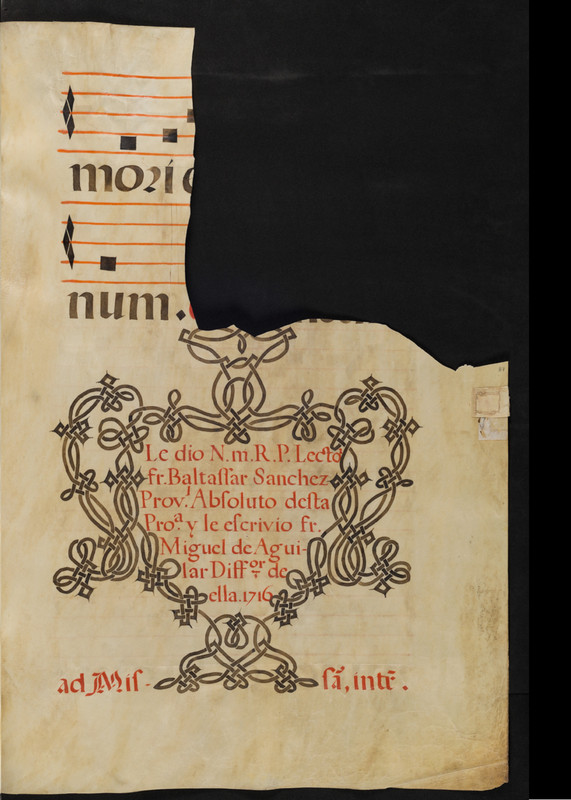 mori
num.
Le dio N. m. R. P. Lecto
fr. Baltassar Sanchez
Prov.l Absoluto desta
Pro.a y le escrivio fr.
Miguel de Agui-
lar Diff.or de
ella. 1716
ad Mis- sã, intẽ.